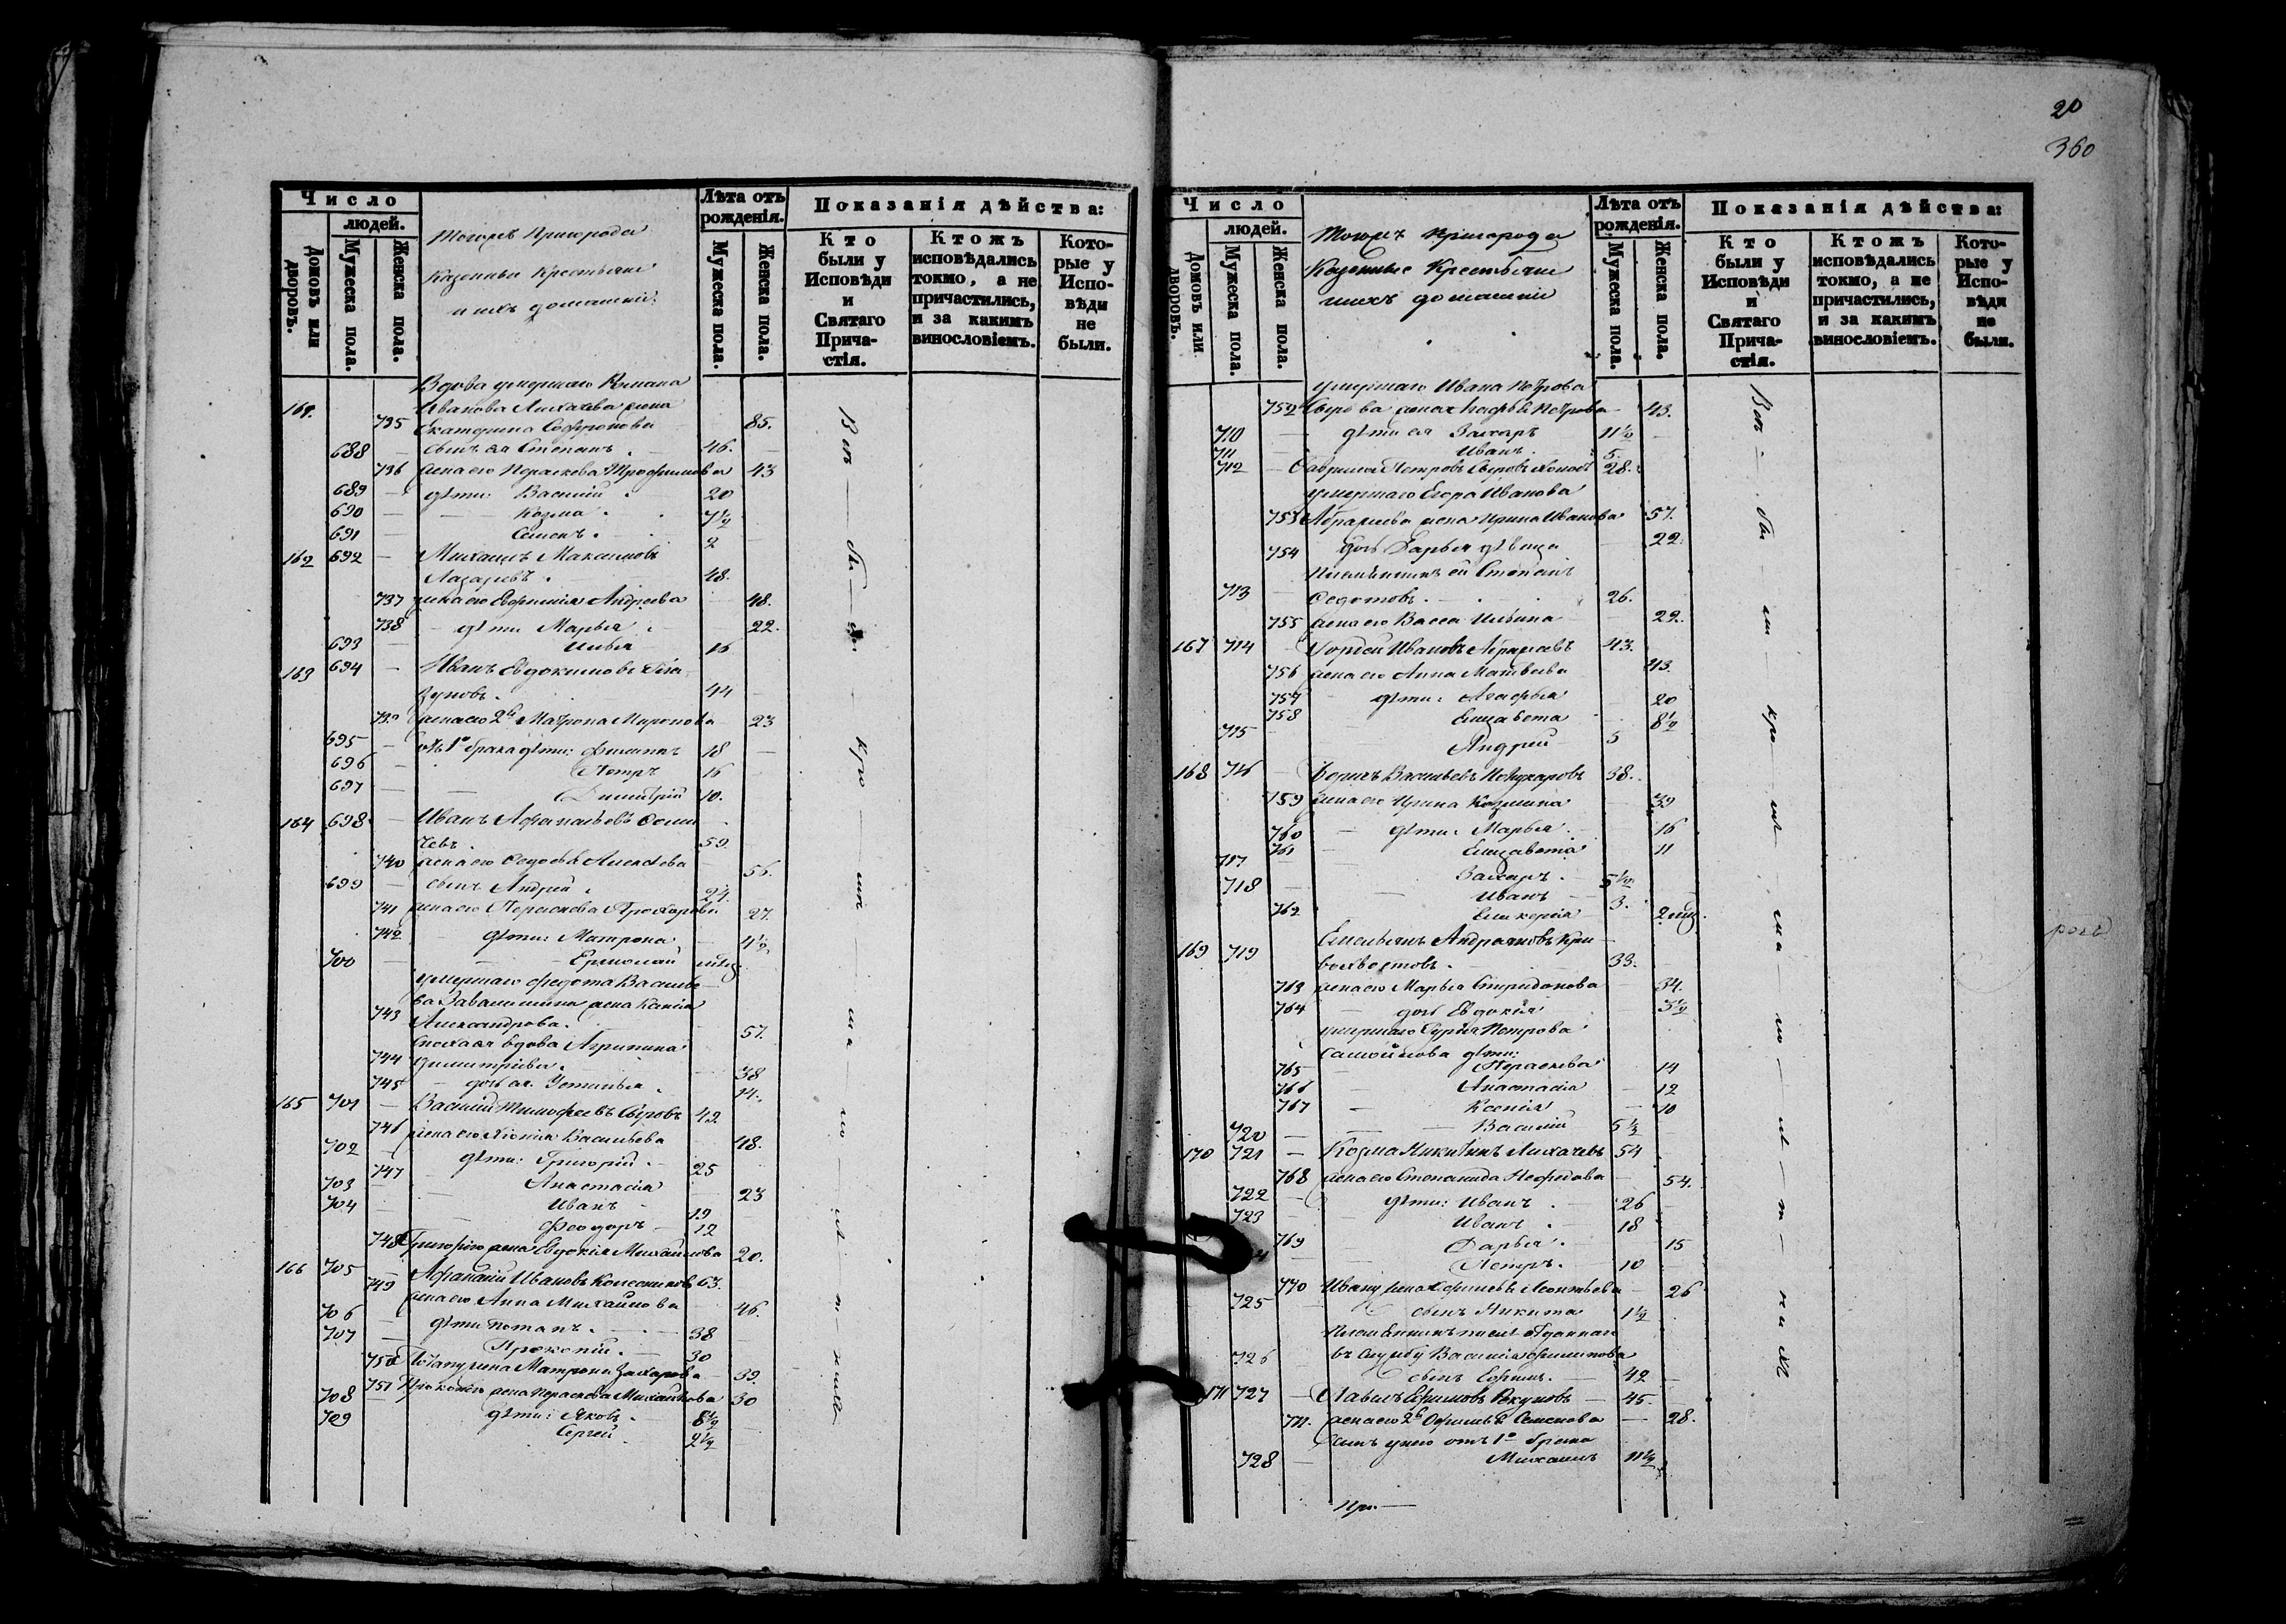 20
360
Число
людей.
Домовъ или дворовъ.
Мужеска пола.
Женска пола.
Тогожъ Пригорода
Казенныи Крестьяне
и ихъ домашніи:
Лѣта отъ рожденія.
Мужеска пола.
Женска пола.
Показанія дѣйства:
Кто были у Исповѣди и Святаго Прича-стія.
Ктожъ исповѣдались токмо, а не причастились, и за какимъ винословіемъ.
Кото-рые у Испо-вѣди не были.
Вдова умершаго Романа
161. Иванова Лихачева жена
735 Екатерина Софронова 85.
688 — сынъ ея Степанъ . 46. —
736 жена его Параскева Трофимова 43
689 — дѣти: Василій . 20
690 — Козма . 7½
691 — Семенъ . 2
162 692 — Михаилъ Максимовъ
Лазаревъ . 48.
737 жена его Евфимія Андреева — 48.
738 — дѣти Марья . 22.
693 — Илья 16
163 694 — Иванъ Евдокимовъ Гла-
зуновъ . 44 —
739 жена его 2я Матрона Миронова 23
695 — отъ 1го брака дѣти: Филипъ 18 —
696 — Петръ 16 —
697 — Димитрій 10.
164 698 — Иванъ Афанасьевъ
чевъ . 59.
740 жена его Федосья Алексѣева 56.
699 — сынъ Андрей . 24.
741 жена его Параскева Прохорова 27.
742 — дѣти: Матрона 4½
700 — Ермолай
умершаго Федота Василье-
ва Завалишина жена Ксенія
743 Александрова. 57.
сноха ея вдова Агрипина
744 Димитріева. 38
745 — дочь ея Устинья . 14.
165 701 — Василій Тимофеевъ Сыровъ 42
746 жена его Хіонія Васильева 48.
702 — дѣти: Григорій . 25
747 — Анастасія 23
703 — Иванъ 19
704 — Феодоръ 12
748 Григорію жена Евдокія Михаилова 20.
166 705 — Афанасій Ивановъ Колесниковъ 63.
749 жена его Анна Михаилова 46.
706 — дѣти Потапъ . 38
707 — Прокопій . 30
750 Потапу жена Матрона Захарова 39.
751 Прокопію жена Параскева Михаилова 30
708 — дѣти: Яковъ . 8½
709 Сергей 2½
Всѣ — бы — ли — кро — мѣ — ма — ло — лѣ — т — нихъ
Число
людей.
Домовъ или дворовъ.
Мужеска пола.
Женска пола.
Тогожъ Пригорода
Казенные Крестьяне
ихъ домашніи
Лѣта отъ рожденія.
Мужеска пола.
Женска пола.
Показанія дѣйства:
Кто были у Исповѣди и Святаго Прича-стія.
Ктожъ исповѣдались токмо, а не причастились, и за какимъ винословіемъ.
Кото-рые у Испо-вѣди не были.
умершаго Ивана Петрова
752 Сырова жена Агафья Петрова 43.
710 — дѣти ея Захаръ 11½ —
711 — Иванъ . 5.
712 — Гаврила Петровъ Сыровъ холостъ 28.
умершаго Егора Иванова
753 Абрамова жена Ирина Иванова 57.
754 дочь Дарья дѣвица 22.
Племянникъ ей Степанъ
713 — Федотовъ . 26.
755 жена его Васса Ильина 22.
167 714 — Гордей Ивановъ Абрамовъ 43.
756 жена его Анна Матвѣева 43.
757 — дѣти: Агафья 20
758 Елизавета 8½
715 — Андрей 5
168 716 — Борисъ Васильевъ 38.
759 жена его Ирина Козмина 39
760 — дѣти: Марья . 16
761 Елизавета 11
717 — Захаръ . 5½
718 — Иванъ 3.
762 Гликерія
169 719 Емельянъ Андрияновъ Кри-
вохвостовъ . 33.
763 жена его Марья Спиридонова 34.
764 — дочь Евдокія 3½
умершаго Гурія Петрова
Самойлова дѣти:
765 — Параскева 14
766 Анастасія 12
767 — Ксенія 10
720 — Василій 5½
170 721 — Козма Никитинъ Лихачевъ 54
768 жена его Степанида Нефедова 54.
722 — дѣти: Иванъ . 26
723 Иванъ . 18
769 — Дарья . 15
Петръ . 10
770 Ивану жена Ефимья Леонтьева 26
725 — сынъ Никита 1½
Племянникъ отданнаго
726 въ службу Василія Филипова
сынъ Ефимъ . 42
171 727 — Павелъ Ефимовъ 45.
771. жена его 2я Офимья Семенова 28.
сынъ у него отъ 1го брака
728 — Михаилъ 11½
Всѣ — бы — ли — кро — мѣ — ма — ло — лѣ — т — нихъ